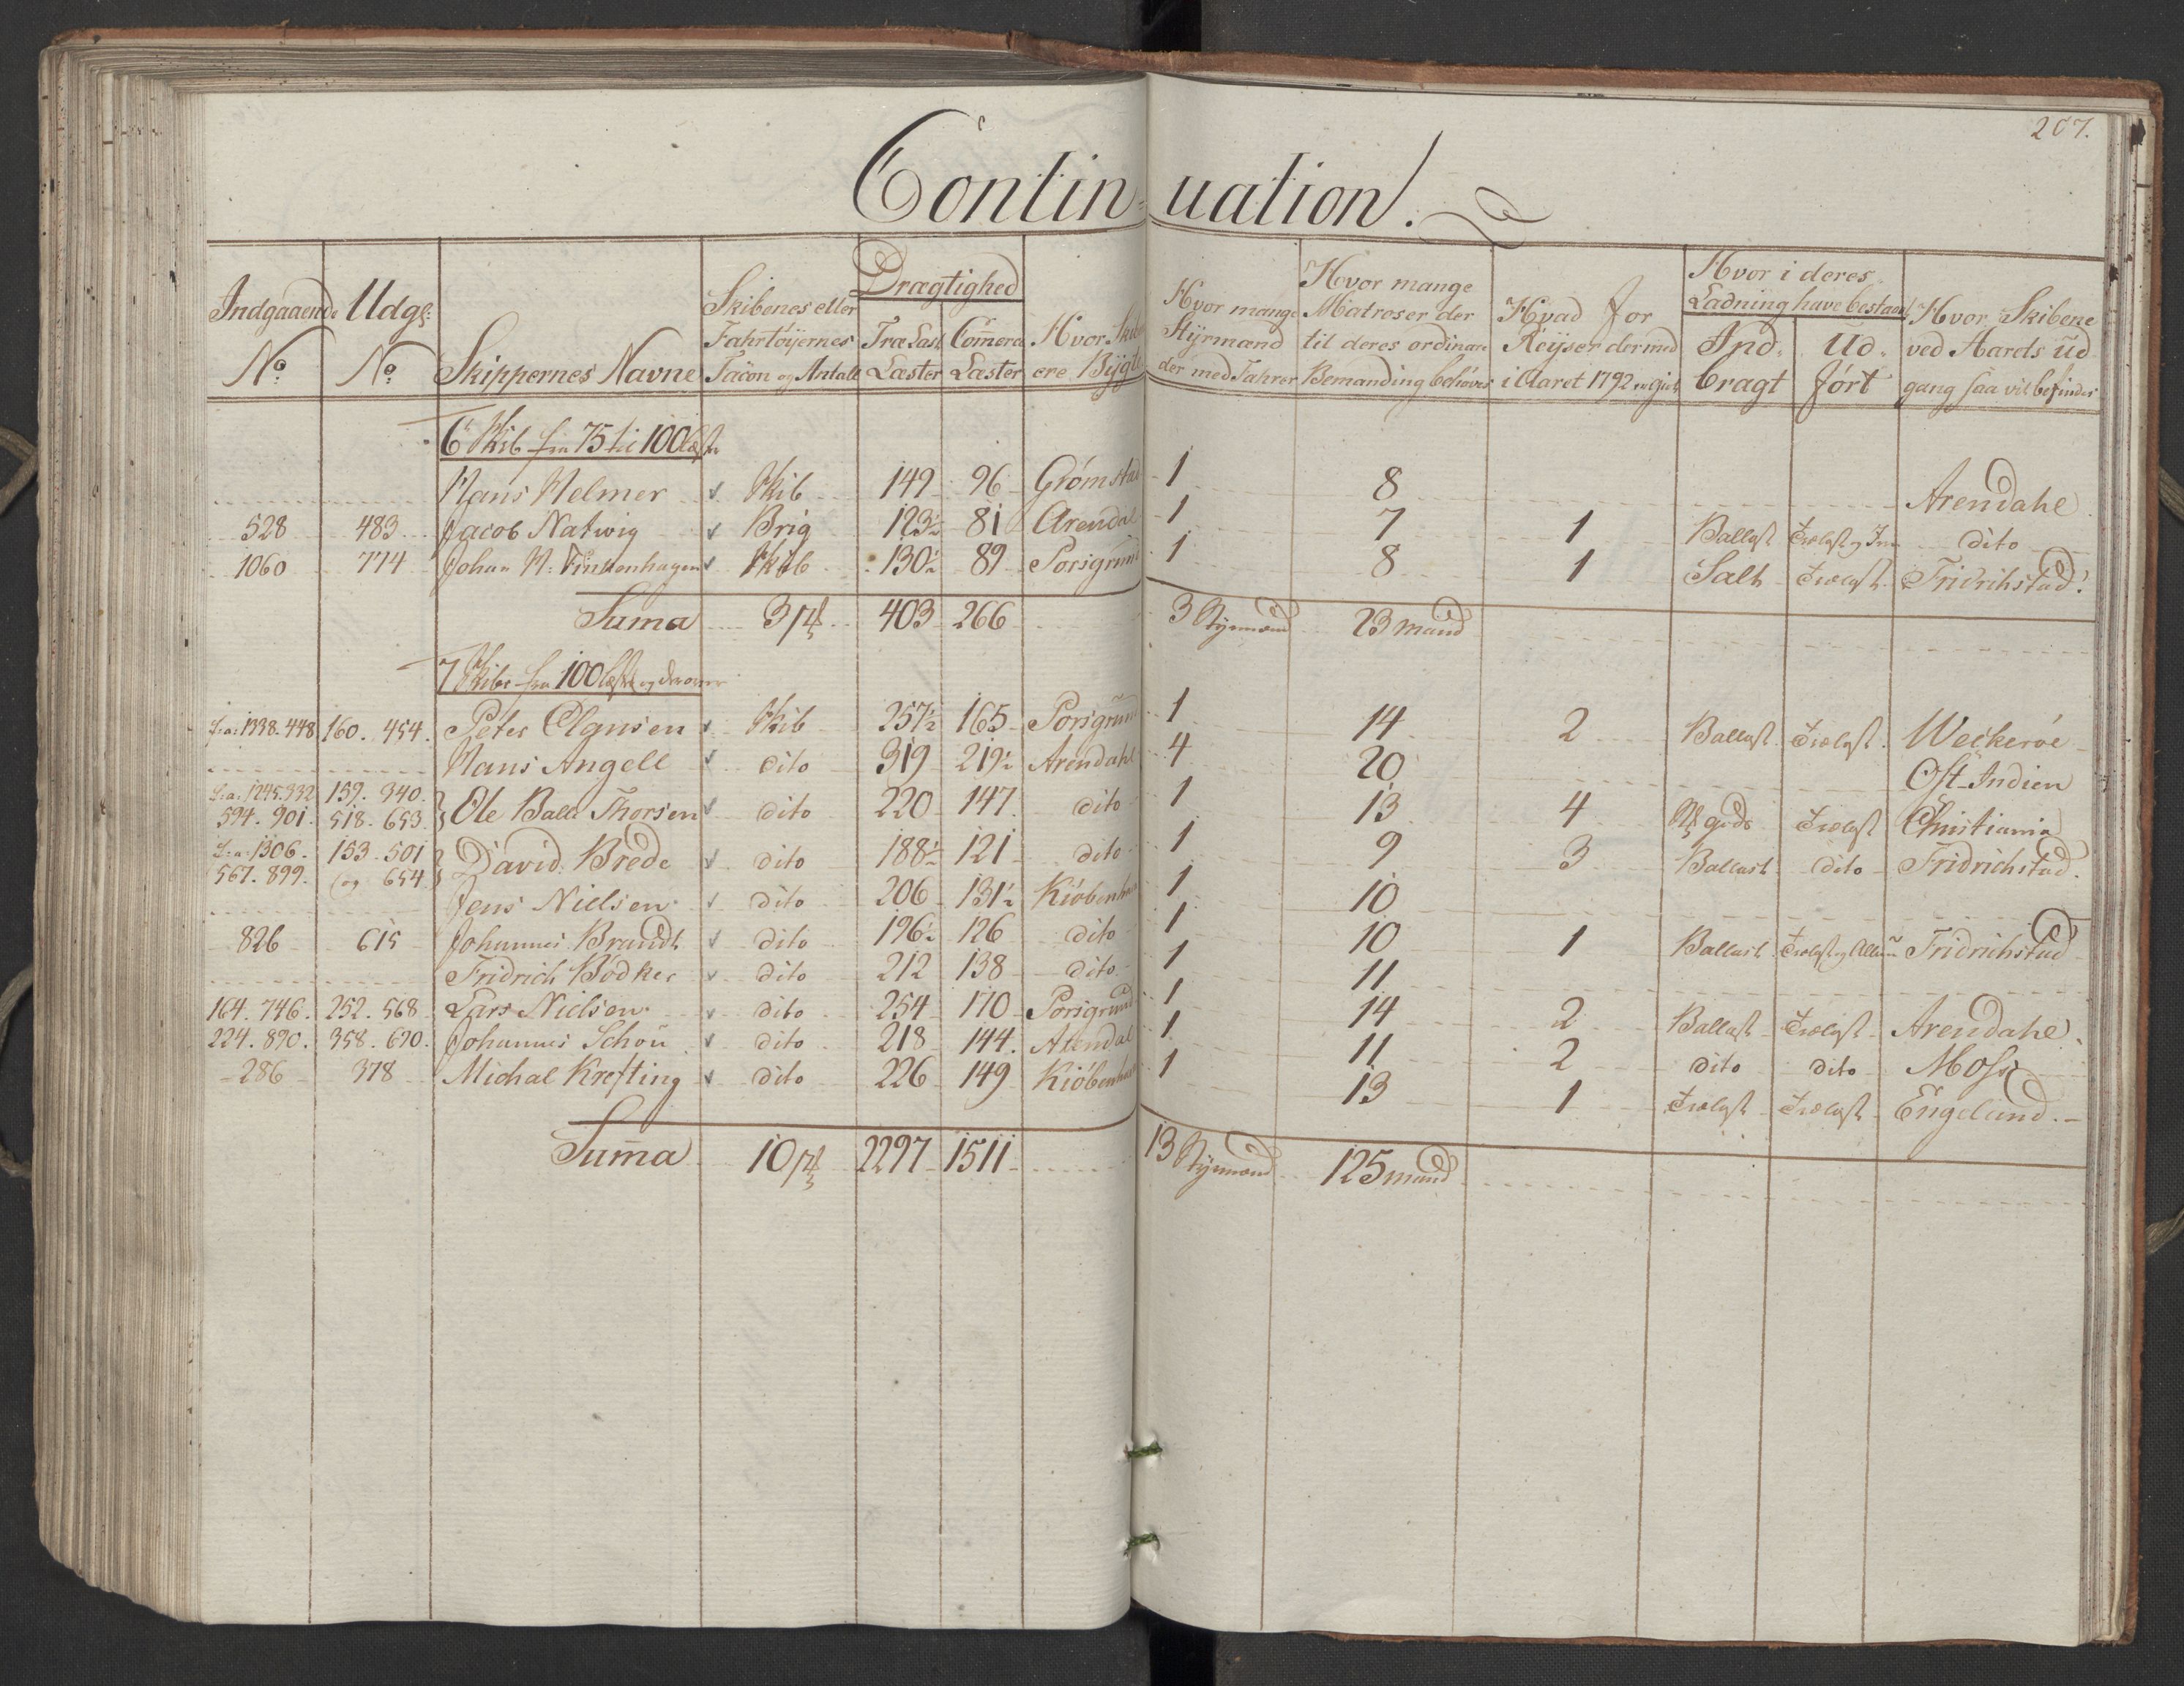 207.
Continuation.
Indgaaende Udg:
No No Skippernes Navne Skibenes eller Fahrtøyernes Facon og Antall Drægtighed Træ Last Læster Com̄erce Læster Hvor Skibene ere Bygte Hvor mange Styrmænd der med Fahrer Hvor mange Matroser der til deres ordinaire Bemanding behøves Hvad for Reyser dermed i Aaret 1792 er giort Hvor i deres Ladning have bestaaet Ind-bragt Ud-ført Hvor Skibene ved Aarets Udgang saa vil befindes
6 Skib fra 75 til 100 Læster
Hans Helmer Skib 149 96 Grømstad 1 8 Arendahl
528 483 Jacob Natwig Brig 123½ 81 Arendal 1 7 1 Ballast Trælast og dito
1060 774 Johan H: Finkenhagen Skib 130½ 89 Porsgrund 1 8 1 Salt Trælast Fridrichstad.
Suma 3 403 266 3 Styrmænd 23 mand
7 Skibe fra 100 Læster og derover
1338. 448 160. 454. Peter Clausen Skib 257½ 165 Porsgrund 1 14 2 Ballast Trælast Weckerøe
Hans Angell dito 319 219½ Arendahl 4 20 Ost-Indien
1245. 332 159. 340.
594. 901. 518. 653. Ole Balle Thorsen dito 220 147 dito 1 13 4 gods Trælast Christiania
1306. 153. 501
567. 899. og 654. David Brede dito 188½ 121 dito 1 9 3 Ballast dito Fridrichstad.
Jens Nielsen dito 206 131½ Kiøbenhavn 1 10
826 615 Johannes Brandt dito 196½ 126 dito 1 10 1 Ballast Trælast og Allun Fridrichstad
Fridrich Bødker dito 212 138 dito 1 11
164. 746. 252. 568 Lars Nielsen dito 254 170 Porsgrund 1 14 2 Ballast Trælast Arendahl.
224. 890. 358. 690. Johannes Schou dito 218 144. Arendal 1 11 2 dito dito Moss
286 378 Michal Krefting dito 226 149 Kiøbenhavn 1 13 1 Trælast Trælast Engeland.
Sum̄a 10 2297 1511 13 Styrmænd 125 mand